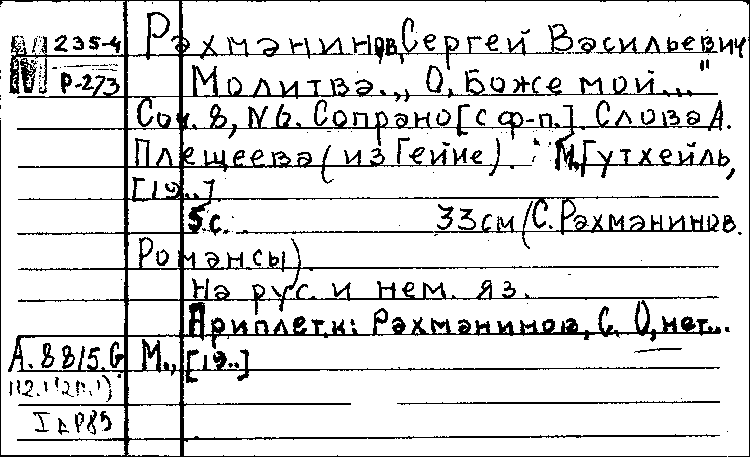 М 235-4
Р-273
Рахманинов, Сергей Васильевич
Молитва. „О, Боже мой..."
Соч. 8, №6. Сопрано [с ф-п.]. Слова А.
Плещеева (из Гейне). М., Гутхейль,
[19..]
5 с. 33 см (С. Рахманинов.
Романсы).
На рус. и нем. яз.
Приплет. к: Рахманинов, С. О, нет...
М., [19..]
А. 8815. G